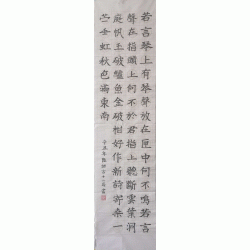 若言琴上有琴聲放在匣中何不鳴若言
聲在指頭上何不於君指上聽斷雲葉洞
庭帆玉破鱸魚金破柑好作新詩寄桑一
苎垂虹秋色滿東南
辛丑年